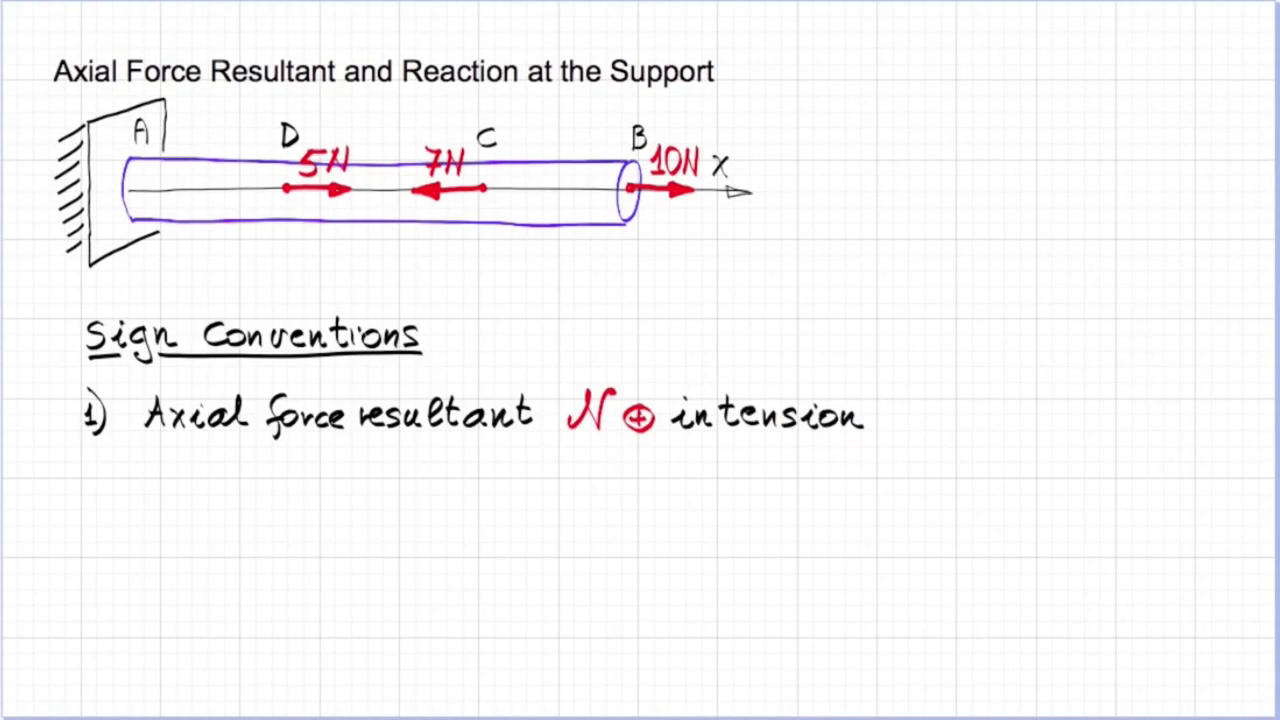 Axial Force Resultant and Reaction at the Support
A D C B
5N 7N 10N X
Sign Conventions
1) Axial force resultant N ⊕ in tension